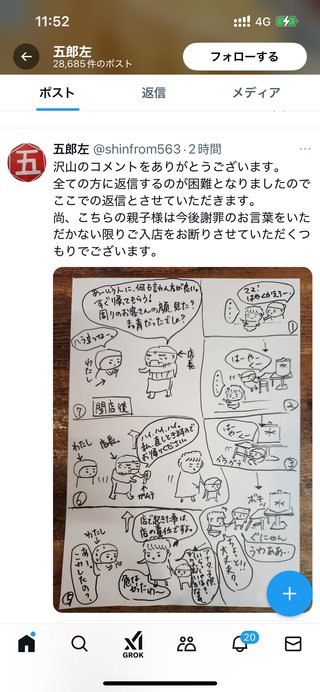 11:52
4G
五郎左
28,685 件のポスト
フォローする
ポスト
返信
メディア
五郎左 @shinfrom563·2時間
沢山のコメントをありがとうございます。
全ての方に返信するのが困難となりましたので
ここでの返信とさせていただきます。
尚、こちらの親子様は今後謝罪のお言葉をいた
だかない限りご入店をお断りさせていただくつ
もりでございます。
①
はーやーく
②
はーやーく
③
ボキッ
ぐにゃん
うわああ…
店で起きた事は
店の責任ですよ。
わたし
⑤
わたし
店長
ハイ、ハイ、ハイ
私、直しときますので
お帰りください。
⑥
あーいう人に、何も言わん方が良い。
すぐ帰ってもらう!
周りのお客さんの顔、見た?
わたし
店長
⑦
閉店後
20
GROK